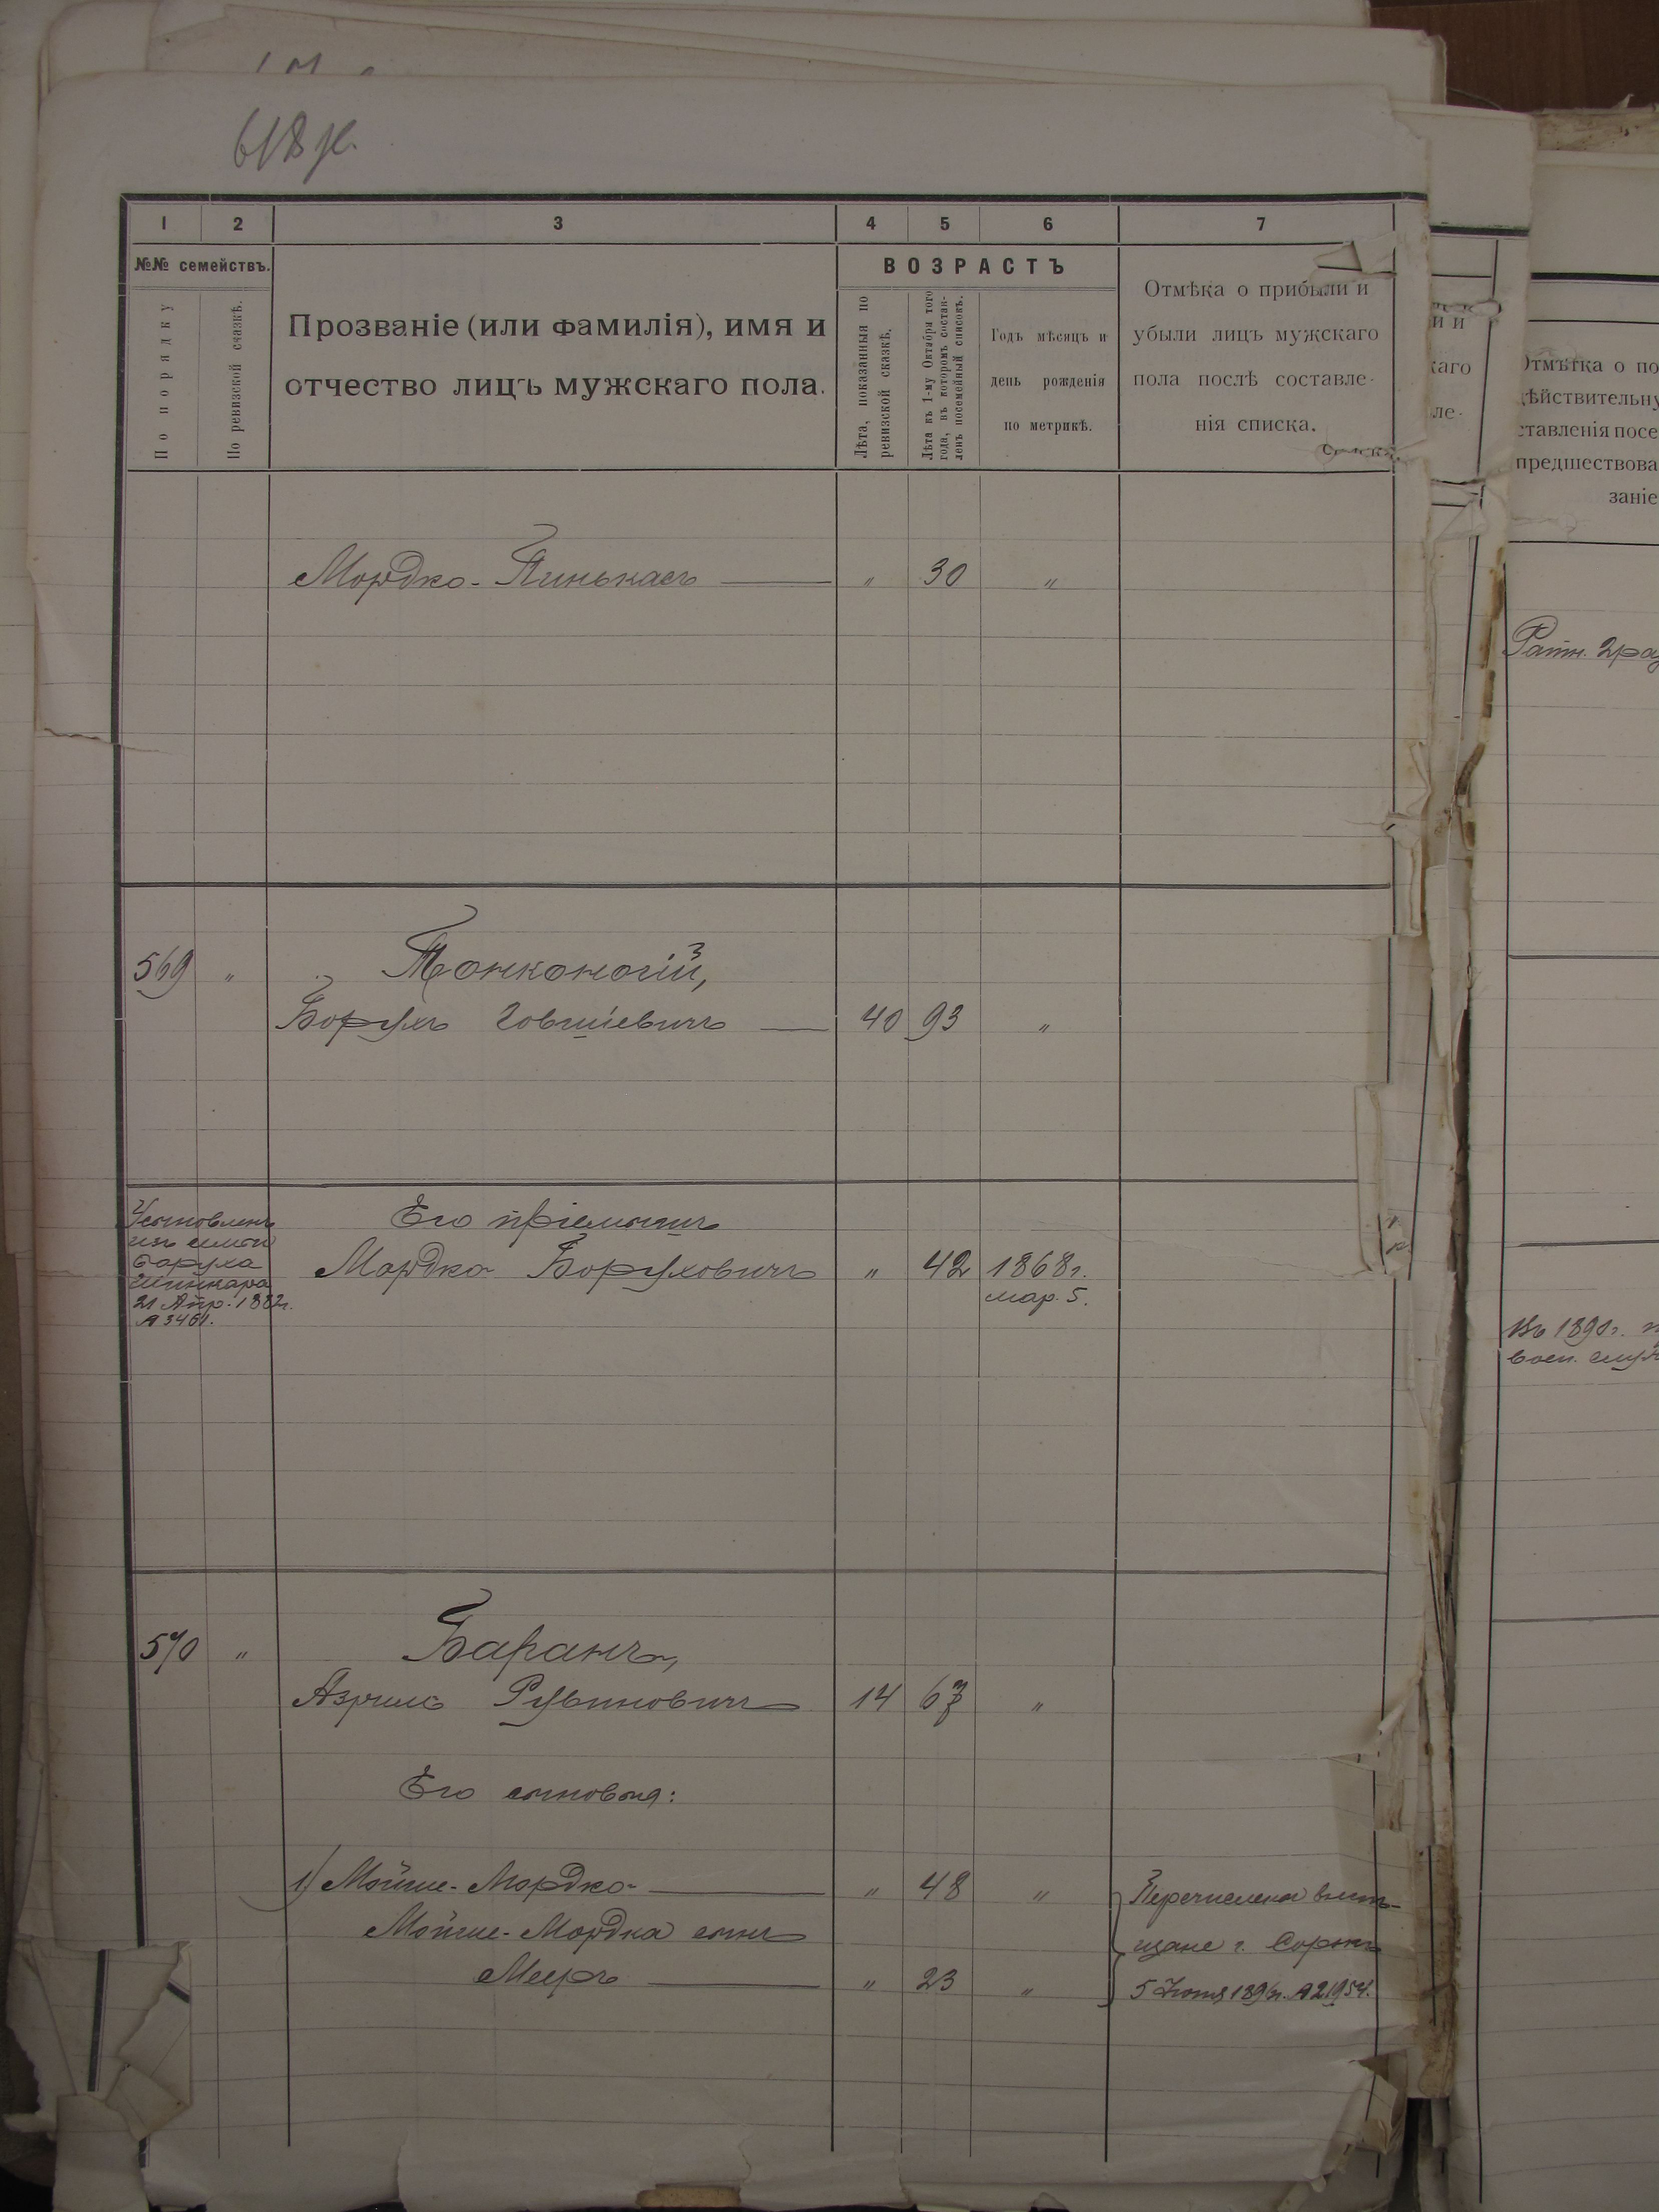 618 
1 2 3 4 5 6 7
№№ семействъ.
По порядку
По ревизской сказкѣ.
Прозваніе (или фамилія), имя и
отчество лицъ мужскаго пола.
ВОЗРАСТЪ
Лѣта, показанныя по
ревизской сказкѣ.
Лѣта къ 1-му Октября того
года, въ которомъ состав-
ленъ посемейный списокъ.
Годъ мѣсяцъ и
день рожденія
по метрикѣ.
Отмѣка о прибыли и
убыли лицъ мужскаго
пола послѣ составле-
нія списка.
и и
каго
ле-
Отмѣтка о по
дѣйствительну
ставленія посе
предшествова
заніе
Мордко-Пинькасъ — " 30 "
Ратн. 2 раз
569 " Тонконогій,
Борухъ Іовшіевичъ — 40 93 "
Усыновленъ
изъ семьи
Боруха
Шинкара
21 Апр. 1882г.
№ 3461.
Его пріемышъ
Мордко Боруховичъ " 42 1868г.
мар. 5.
Въ 1890г.
воен. служ
570 " Баранъ,
Азриль Рувиновичъ 14 67 "
Его сыновья:
1) Мойше-Мордко — " 48 "
Мойше-Мордка сынъ
Меиръ — " 23 "
Перечислены въ мѣ-
щане г. Сорокъ
5 Іюня